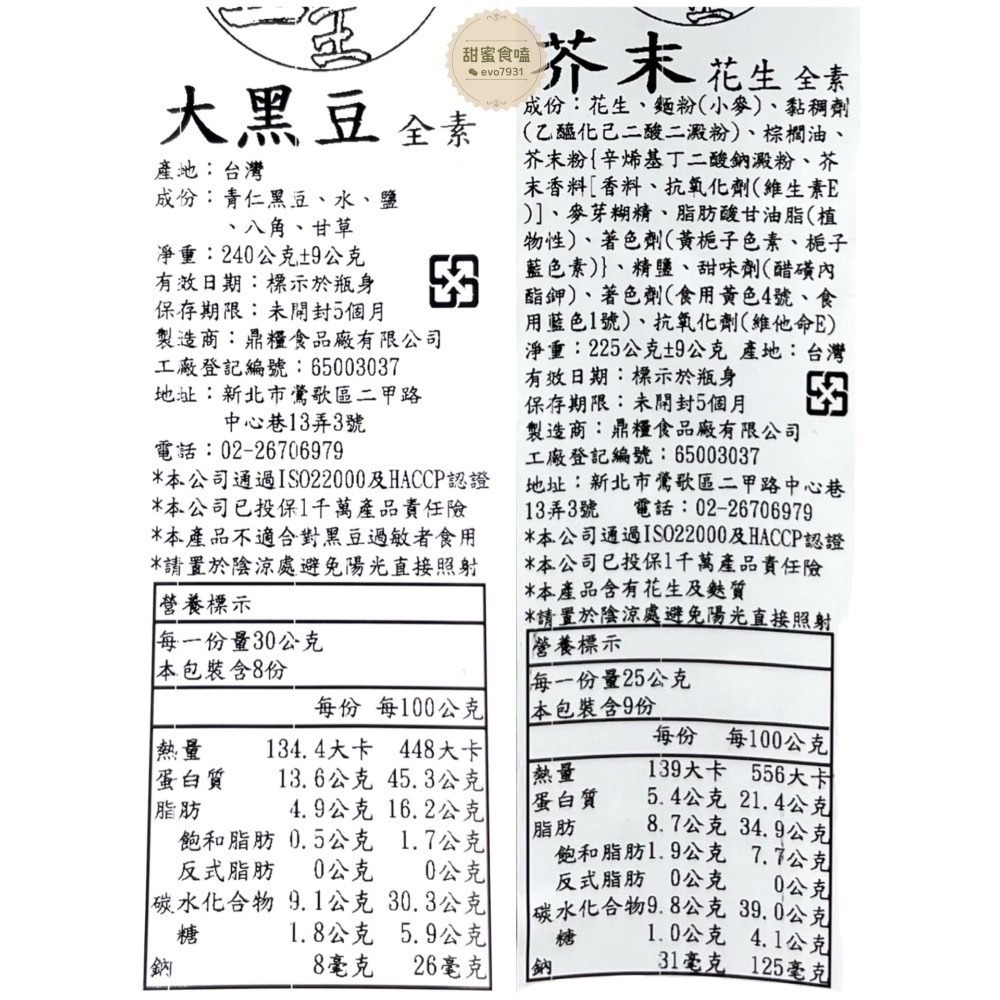 甜蜜食嗑
evo7931
大黑豆 全素
產地：台灣
成份：青仁黑豆、水、鹽
、八角、甘草
淨重：240公克±9公克
有效日期：標示於瓶身
保存期限：未開封5個月
製造商：鼎糧食品廠有限公司
工廠登記編號：65003037
地址：新北市鶯歌區二甲路
中心巷13弄3號
電話：02-26706979
*本公司通過ISO22000及HACCP認證
*本公司已投保1千萬產品責任險
*本產品不適合對黑豆過敏者食用
*請置於陰涼處避免陽光直接照射
營養標示
每一份量30公克
本包裝含8份
每份 每100公克
熱量 134.4大卡 448大卡
蛋白質 13.6公克 45.3公克
脂肪 4.9公克 16.2公克
飽和脂肪 0.5公克 1.7公克
反式脂肪 0公克 0公克
碳水化合物 9.1公克 30.3公克
糖 1.8公克 5.9公克
鈉 8毫克 26毫克
芥末花生 全素
成份：花生、麵粉(小麥)、黏稠劑
(乙醯化己二酸二澱粉)、棕櫚油、
芥末粉{辛烯基丁二酸鈉澱粉、芥
末香料[香料、抗氧化劑(維生素E
)]、麥芽糊精、脂肪酸甘油脂(植
物性)、著色劑(黃梔子色素、梔子
藍色素)}、精鹽、甜味劑(醋磺內
酯鉀)、著色劑(食用黃色4號、食
用藍色1號)、抗氧化劑(維他命E)
淨重：225公克±9公克 產地：台灣
有效日期：標示於瓶身
保存期限：未開封5個月
製造商：鼎糧食品廠有限公司
工廠登記編號：65003037
地址：新北市鶯歌區二甲路中心巷
13弄3號 電話：02-26706979
*本公司通過ISO22000及HACCP認證
*本公司已投保1千萬產品責任險
*本產品含有花生及麩質
*請置於陰涼處避免陽光直接照射
營養標示
每一份量25公克
本包裝含9份
每份 每100公克
熱量 139大卡 556大卡
蛋白質 5.4公克 21.4公克
脂肪 8.7公克 34.9公克
飽和脂肪 1.9公克 7.7公克
反式脂肪 0公克 0公克
碳水化合物 9.8公克 39.0公克
糖 1.0公克 4.1公克
鈉 31毫克 125毫克